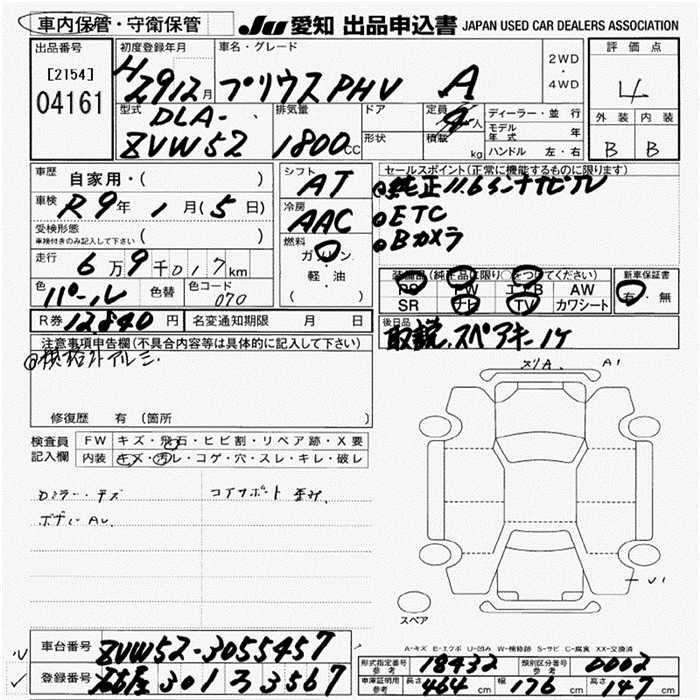 車内保管・守衛保管 JU 愛知 出品申込書 JAPAN USED CAR DEALERS ASSOCIATION
出品番号 初度登録年月 車名・グレード 2WD・4WD 評価点
[2154] H29 12月 プリウスPHV A 4
04161 型式 排気量 ドア 定員 人 ディーラー・並行 外装 内装
DLA-
ZVW52 1800CC 形状 積載 kg モデル年式 年 B B
ハンドル 左・右
車歴 自家用・( ) シフト AT セールスポイント(正常に機能するものに限り)
車検 R9年 1月(5日) 冷房 AAC ◎純正11.6インチナビTV
受検形態 ( ) ◎ETC
車検付きのみ記入して下さい 燃料 ◎Bカメラ
走行 6万9千017km ガソリン
色 パール 色替 色コード 070 軽・油 ( )
装備品(純正品に限り○をつけてください) 新車保証書
PS PW エアB AW 有・無
SR ナビ TV カワシート
R券 12,840円 名変通知期限 月 日 後日品
取説、スペアキー1ケ
注意事項申告欄(不具合内容等は具体的に記入して下さい)
◎規格外アルミ.
A1
修復歴 有 (箇所
検査員記入欄 FW キズ・飛石・ヒビ割・リペア跡・X要
内装 キズ・汚レ・コゲ・穴・スレ・キレ・破レ
Dミラー・キズ コアサポート 歪み.
ボデーAU.
スペア
A-キズ E-エクボ U-凹み W-補修跡 S-サビ C-腐食 XX-交換済
車台番号 ZVW52-3055457
登録番号 名古屋 301 ろ 3567
形式指定番号 参考 18432 類別区分番号 参考 0002
車庫証明用 参考 長さ 464cm 幅 176cm 高さ 147cm